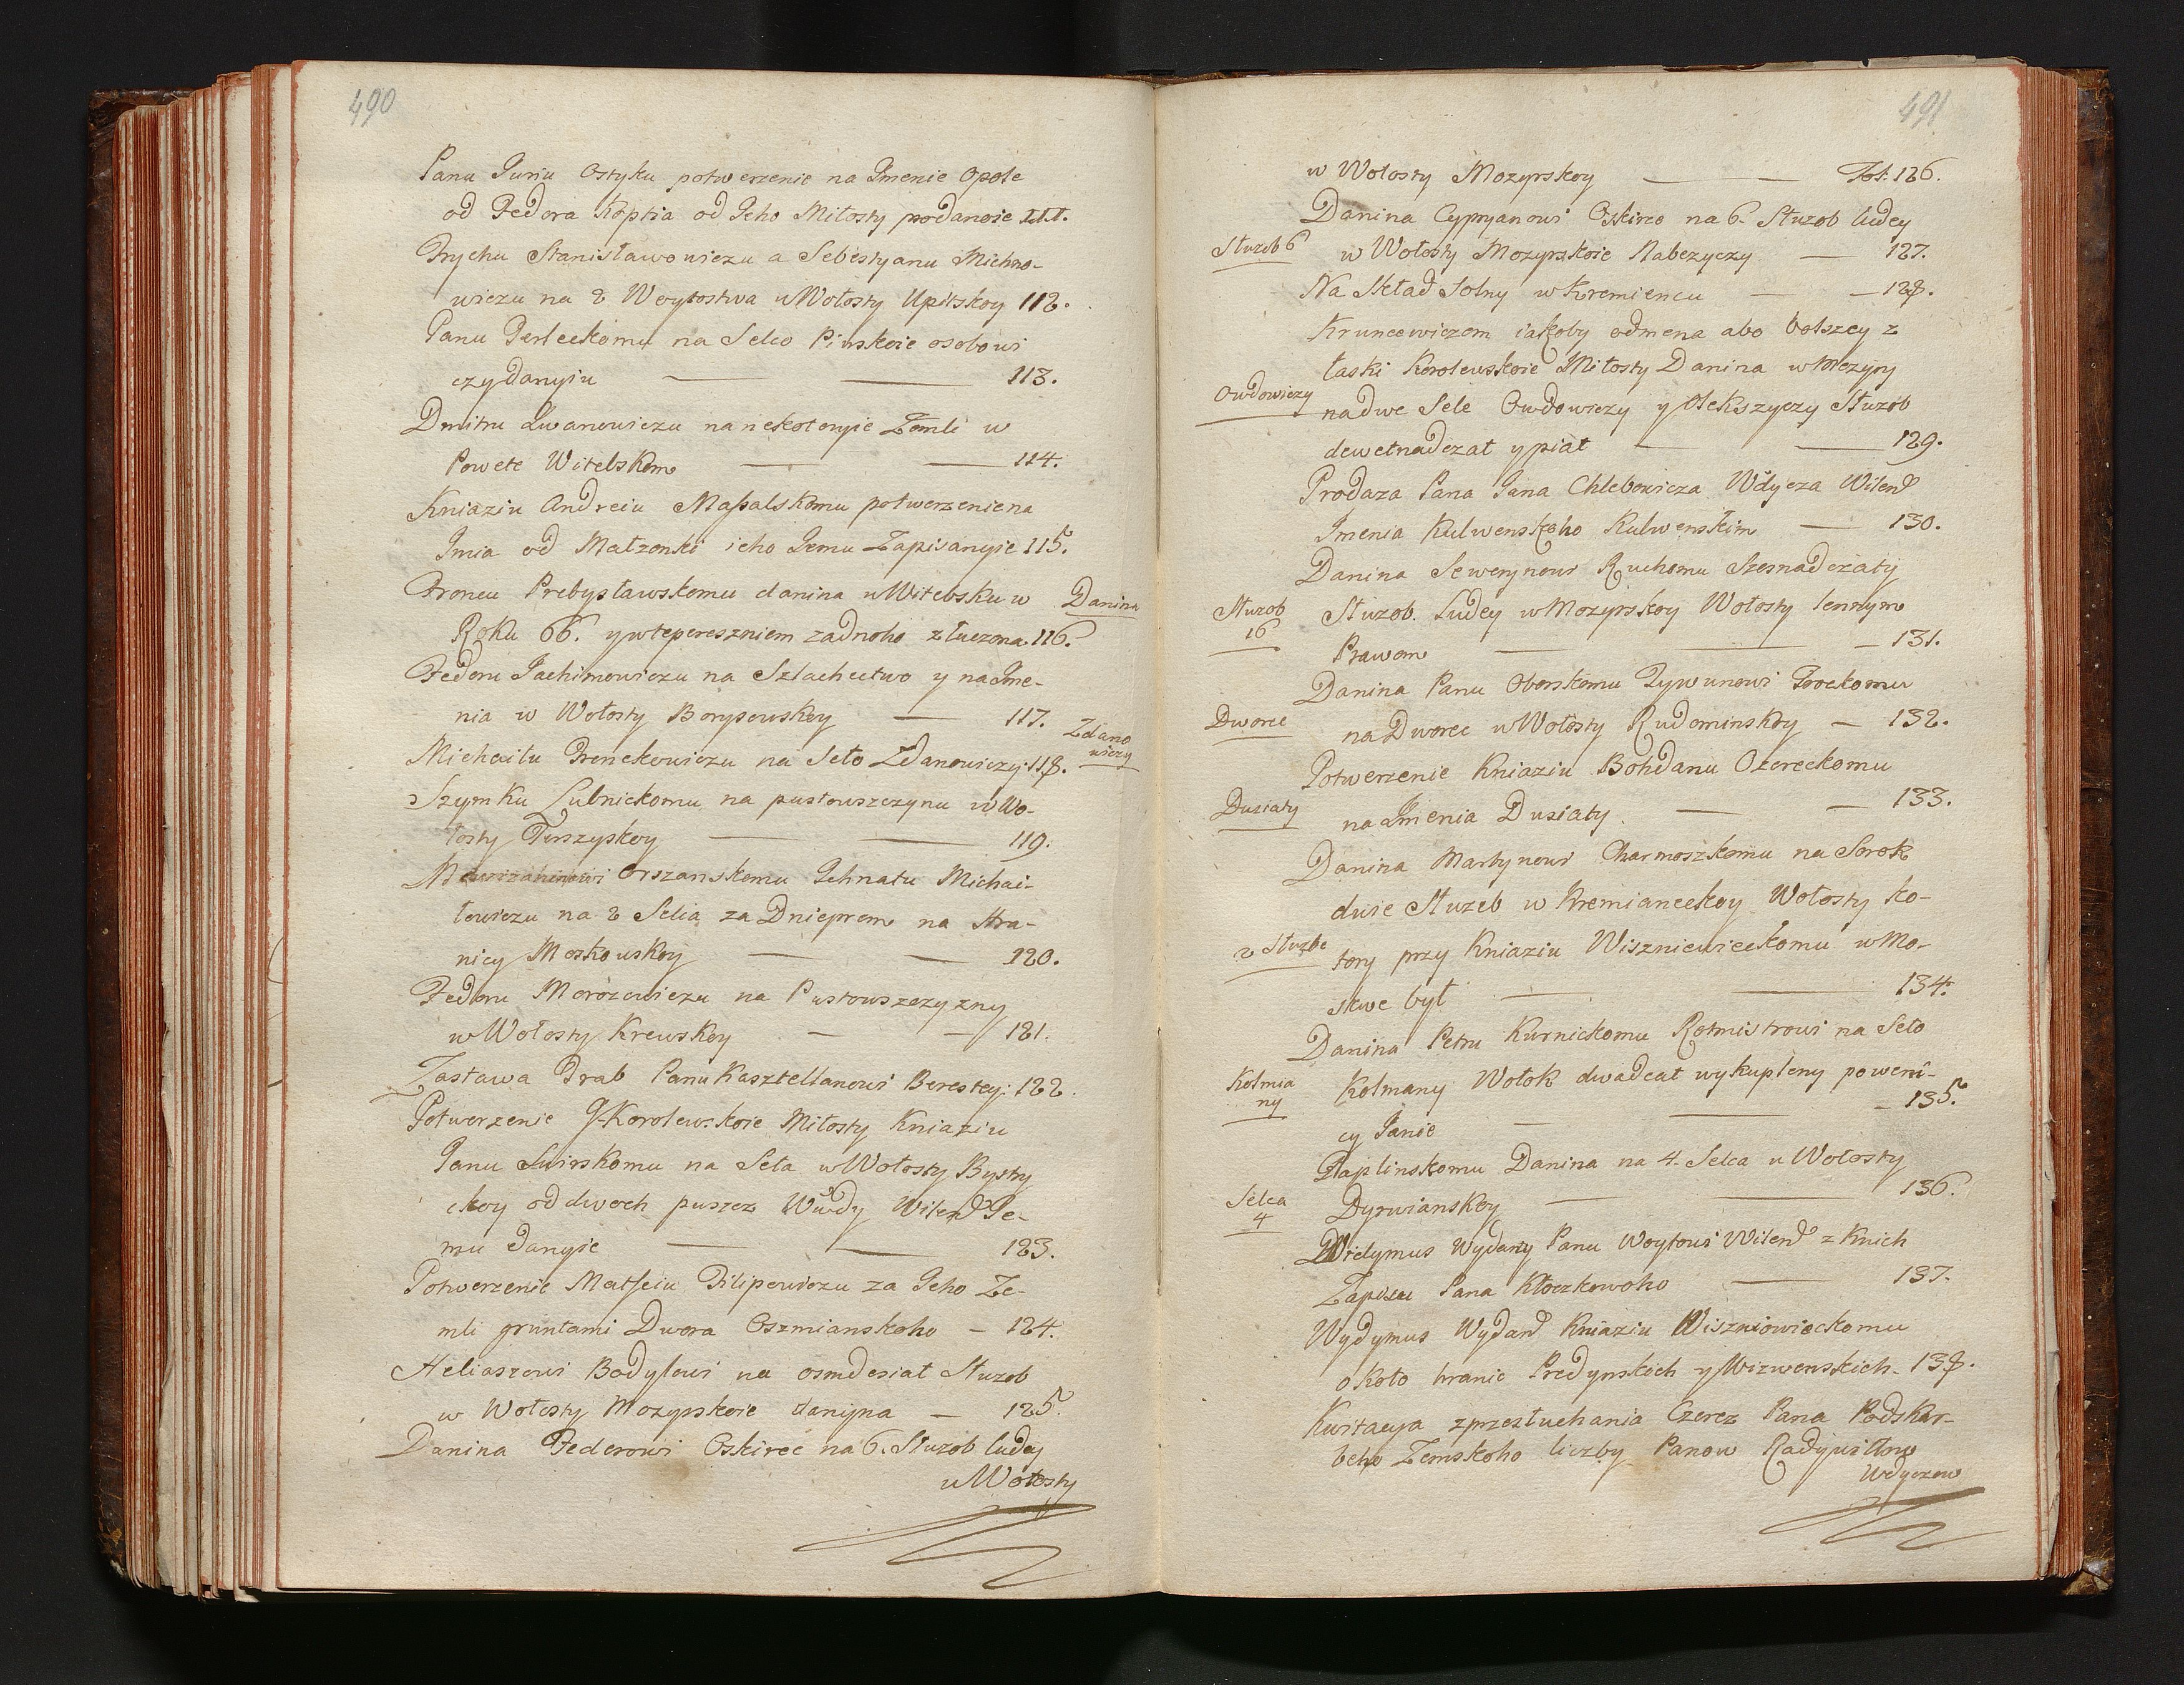 490
Panu Juriu Ostyku potwerzenie na Jmenie Opole
od Fedora Koptia od Jeho Miłosty podanoie 111.
Hrychu Stanisławowiczu a Sebestyanu Michno-
wiczu na 2 Woytostwa u Wołosty Upitskoy 112.
Panu Terleckomu na Selco Pinskoie osobowi
czydanyiu 113.
Dmitru Iwanowiczu na nekotoryie Zemli w
Powete Witebskom 114.
Kniaziu Andreiu Massalskomu potwerzenie na
Jmia od Małzonki ieho Jemu Zapisanyie 115.
Froncu Prebysławskomu danina u Witebsku w
Danina
Roku 66. y w tepereszniem zadnoho złuczona 116.
Fedoru Jachimowiczu na Szlachectwo y na Jme-
nia w Wołosty Borysowskoy 117.
Zdano
wiczy
Michaiłu Hrenekowiczu na Seło Zdanowiczy 118.
Szymku Lubnickomu na pustowszczynu w Wo-
łosty Turszyskoy 119.
Orszanskomu Jehnatu Michai-
łowiczu na 2 Selca za Dnieprom na Hra-
nicy Moskowskoy 120.
Fedoru Morozowiczu na Pustowszczyzny
w Wołosty Krewskoy 121.
Zastawa Drab Panu Kasztellanowi Berestey: 122.
Potwerzenie J. Korolewskoie Miłosty Kniaziu
Janu Swirskomu na Seła w Wołosty Bystry
ckoy od dwoch puszcz Wwdy Wilend Je-
mu danyie 123.
Potwerzenie Matfeiu Filipowiczu za Jeho Ze-
mli gruntami Dwora Oszmianskoho 124.
Heliaszowi Bodyłowi na osmdesiat Słuzob
w Wołosty Mozyrskoie danyna 125.
Danina Federowi Oskirce na 6. Słuzob ludey
u Wołosty
491
w Wołosty Mozyrskoy Fol: 126.
Danina Cypryanowi Oskirco na 6. Słuzob ludey
Słuzob 6
w Wołosty Mozyrskoie Nabezyczy 127.
Na Skład Solny w Kremiencu 128.
Kruncewiczom iakoby odmena abo bolszey z
łaski Korolewskoie Miłosty Danina w Mozyry
Owdowiczy
na dwe Sele Owdowiczy y Olekszyczy Słuzob
dewetnadczat y piat 129.
Prodaza Pana Jana Chlebowicza Wdycza Wilend
Jmenia Kulwenskoho Kulwenskim 130.
Danina Sewerynowi Ruchomu Szesnadczaty
Słuzob
16
Słuzob. Ludey w Mozyrskoy Wołosty lennym
Prawom 131.
Danina Panu Oborskomu Tywunowi Trockomu
Dworec
na Dworec u Wołosty Rudominskoy 132.
Potwerzenie Kniaziu Bohdanu Ozereckomu
Dusiaty
na Jmenia Dusiaty 133.
Danina Martynowi Charmoszkomu na Sorok
dwie Słuzeb w Kremianeckoy Wołosty ko-
2 Słuzbe
tory przy Kniaziu Wiszniewieckomu w Mo-
skwe był 134.
Danina Petru Kurnickomu Rotmistrowi na Seło
Kolmia
ny
Kolmany Wołok dwadcat wykupleny poweni-
cy Janie 135.
Danina na 4. Selca u Wołosty
Selca
4
Dyrwianskoy 136.
Widymus Wydany Panu Woytowi Wilend z Knich
Zapisu Pana Kłoczkowoho 137.
Wydymus Wydand Kniaziu Wiszniowieckomu
około hranic Predynskich y Wizwenskich 138.
Kwitacya zprzesłuchania Czerez Pana Podskar-
beho Zemskoho liczby Panow
Wdyczow